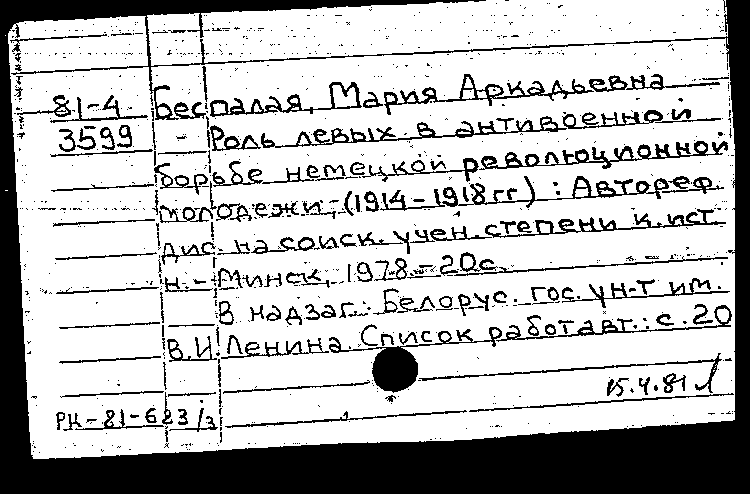 81-4 Беспалая, Мария Аркадьевна
3599 - Роль левых в антивоенной
борьбе немецкой революционной
молодежи, (1914-1918гг) : Автореф.
дис. на соиск. учен. степени к. ист.
н. - Минск, 1978.-20с.
В надзаг.: Белорус. гос. ун-т им.
В.И. Ленина. Список работ авт.: с. 20
15.4.81
РК-81-623/3